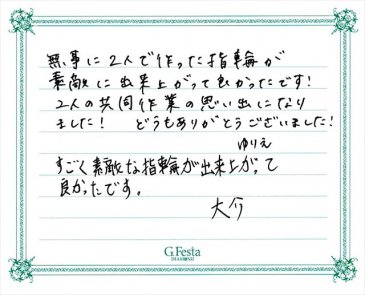 無事に2人で作った指輪が
素敵に出来上がって良かったです!
2人の共同作業の思い出になり
ました! どうもありがとうございました!
ゆりえ
すごく素敵な指輪が出来上がって
良かったです。
大介
G.Festa
DIAMOND